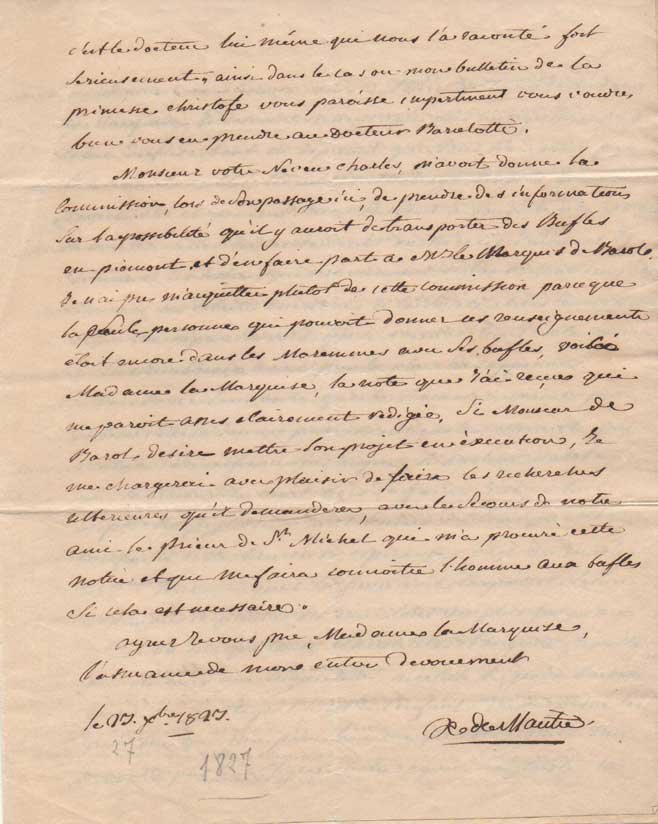 c'est le docteur lui même qui nous l'a raconté fort
serieusement, ainsi dans le cas ou mon bulletin de la
princesse christofe vous paroisse impertinent vous voudrez
bien vous en prendre au Docteur Barielotti.
Monsieur votre Neveu Charles, m'avoit donné la
Commission, lors de son passage ici, de prendre des informations
sur la possibilité qu'il y auroit de transporter des Bufles
en piomont et d'en faire part a Mr le Marquis de Barol.
Je n'ai pu m'aquitter plutot de cette commission parceque
la seule personne qui pouvoit donner ces renseignements
etoit encore dans les Maremmes avec ses bufles, voilà
Madame la Marquise, la note que j'ai reçue qui
me paroit assés clairement redigée, Si Monsieur de
Barol desire mettre son projet en éxécution, Je
me chargerai avec plaisir de faire les recherches
ulterieures qu'il demandera, avec les secours de notre
ami le Prieur de St Michel qui m'a procuré cette
notice et qui me faira connoitre l'homme aux bufles
Si cela est necessaire.
agréez je vous prie, Madame la Marquise,
l'assurance de mon entier devouement
le 27. xbre 1827.
X. de Maistre.
27
1827